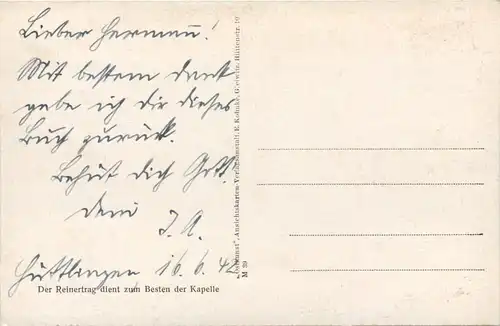 Lieber Hermann!
Mit bestem dank
gebe ich dir dieses
Buch zurück.
Behüt dich Gott.
dein
J. A.
Hüttlingen 16. 6. 42
Der Reinertrag dient zum Besten der Kapelle
Ansichtskarten-Verlagsanstalt, E.
M 39